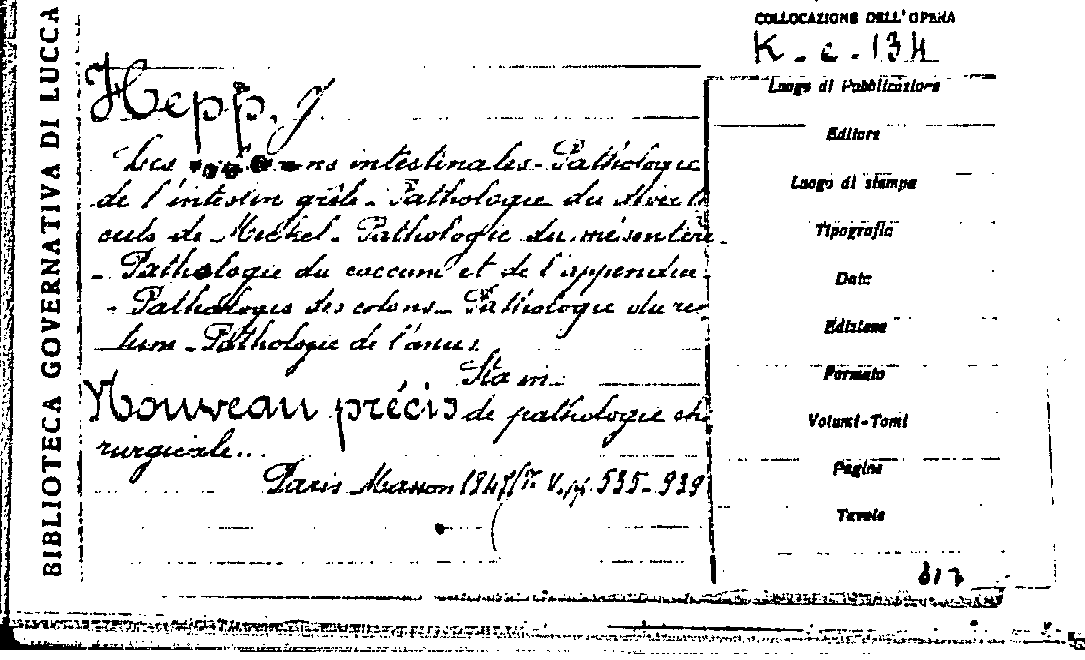 BIBLIOTECA GOVERNATIVA DI LUCCA
COLLOCAZIONE DELL'OPERA
K. c. 134
Hepp, J
Les intestinales - Pathologie
de l'intestin grêle - Pathologie du diverti
cule de Meckel - Pathologie du mésentère
- Pathologie du caecum et de l'appendice
- Pathologies des colons - Pathologie du rec
tum - Pathologie de l'anus
Sta in
Nouveau précis de pathologie chi
rurgicale...
Paris Masson V. pp. 535-939
Luogo di Pubblicazione
Editore
Luogo di stampa
Tipografia
Data
Edizione
Formato
Volumi-Tomi
Pagine
Tavole
617